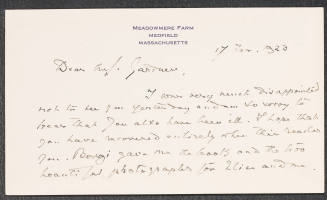 MEADOWMERE FARM
MEDFIELD
MASSACHUSETTS
17 Nov. 1923
Dear Mrs. Gardner,
I was very much disappointed
not to see you yesterday and am so sorry to
hear that you also have been ill. I hope that
you have recovered entirely when this reaches
you. gave me the books and the two
beautiful photographs for and me.